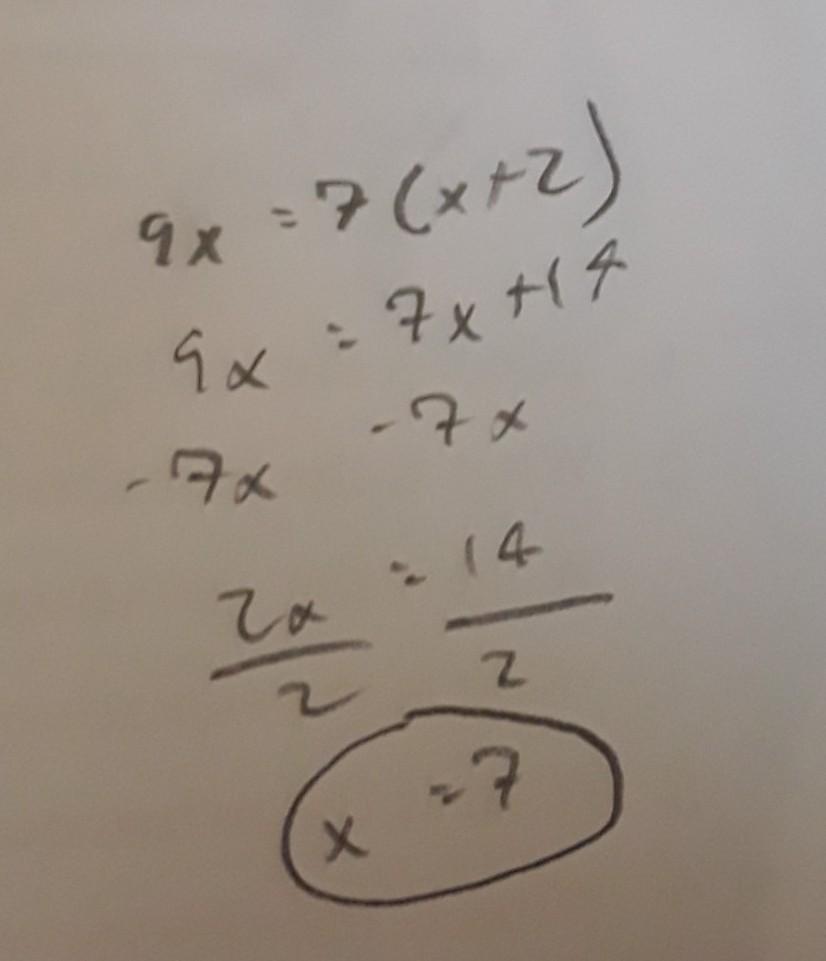 9x = 7(x+2)
9x = 7x +14
-7x -7x
2x = 14
2 2
x = 7